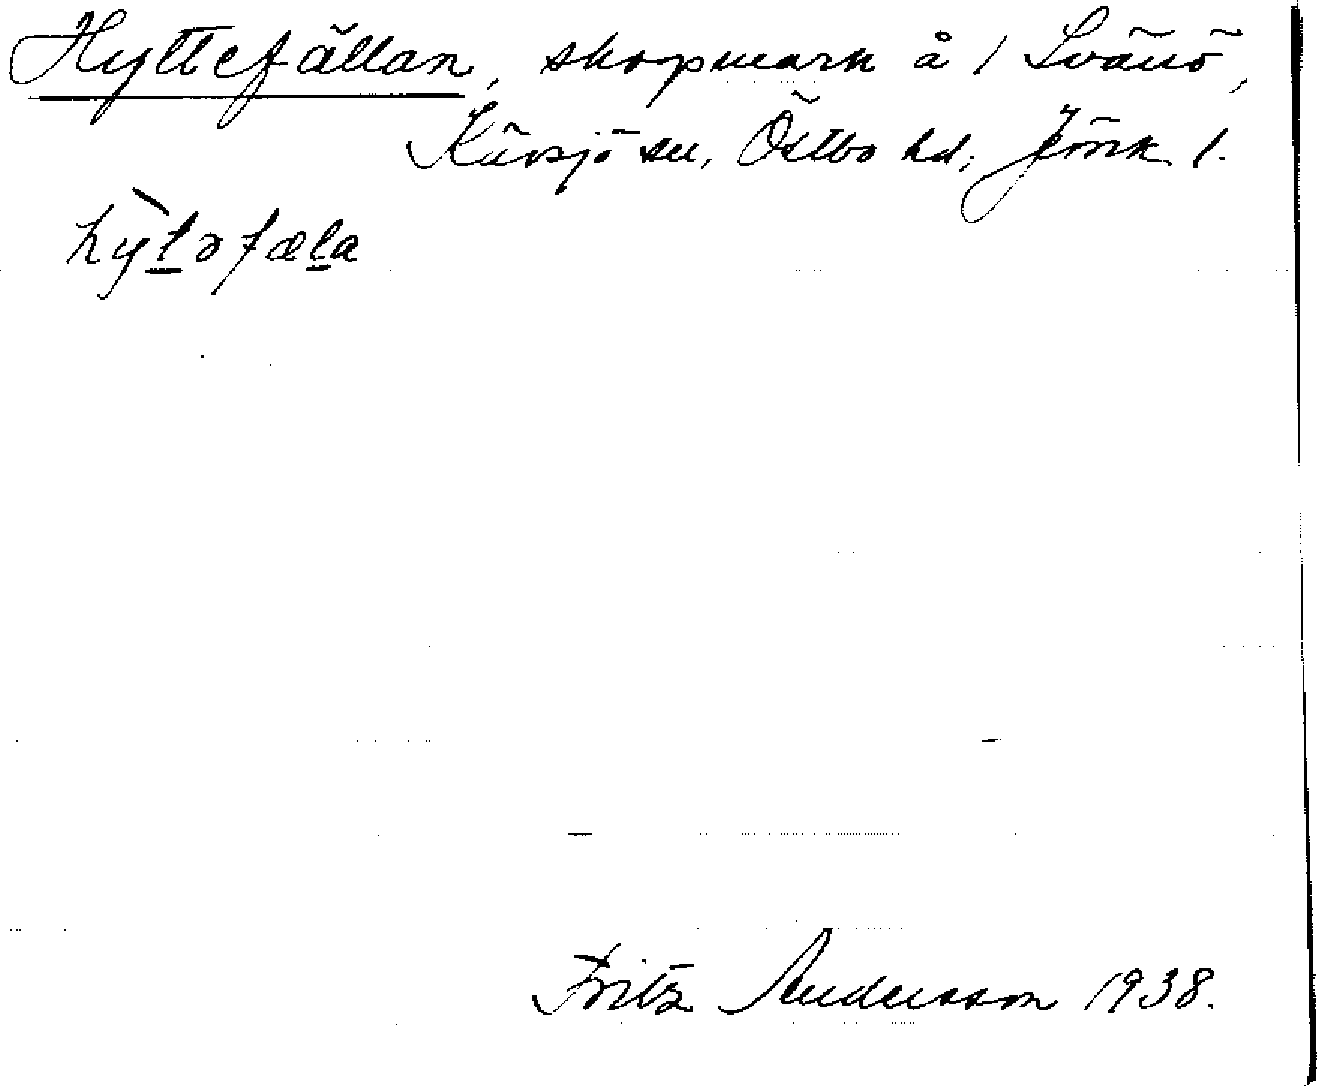 Hyttefällan, skogsmark å 1 Svänö,
Kävsjö sn, Östbo hd, Jönk l.
hỳt̲əfæl̲a
Fritz Andersson 1938.